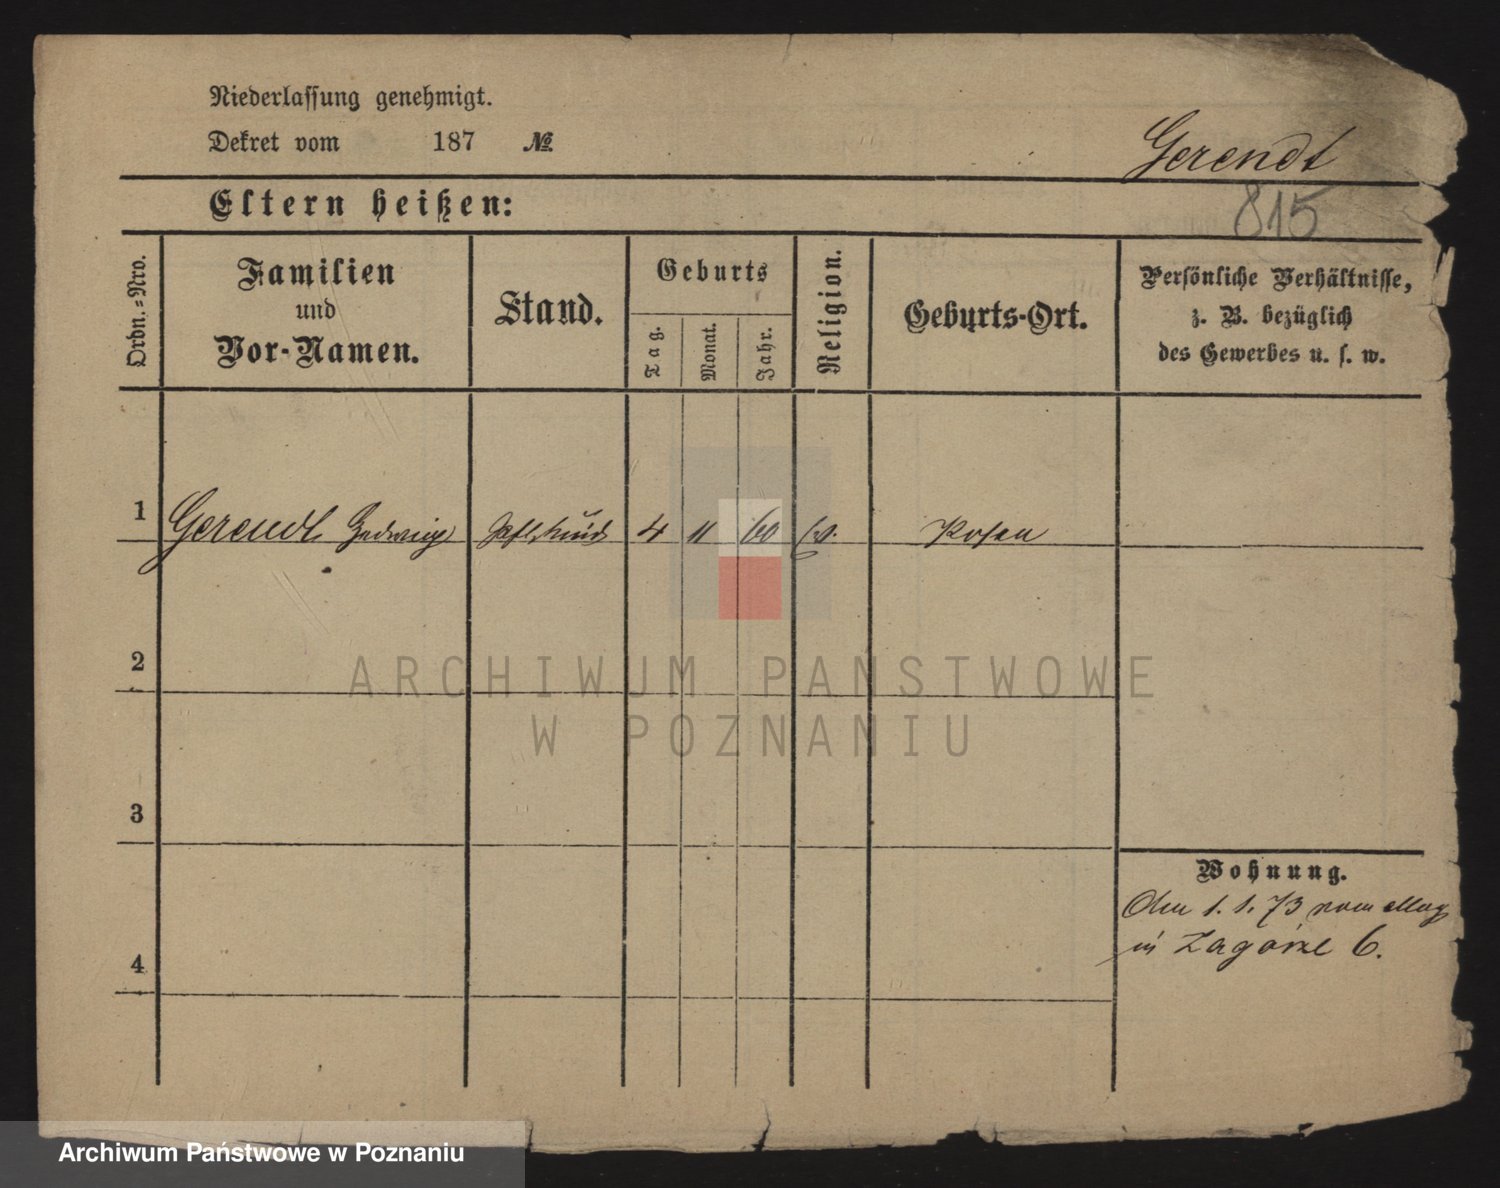 Niederlassung genehmigt.
Dekret vom 187 №
Gerendt
Eltern heißen:
815
Ordn.=Nro.
Familien
und
Vor-Namen.
Stand.
Geburts
Tag.
Monat.
Jahr.
Religion.
Geburts-Ort.
Persönliche Verhältnisse,
z. B. bezüglich
des Gewerbes u. s. w.
1 Gerendt Hedwig 4 11 60 Ev. Posen
2
3
4
Wohnung.
Den 1. 1. 73 vom Mag
in Zagórze 6.
ARCHIWUM PAŃSTWOWE
W POZNANIU
Archiwum Państwowe w Poznaniu